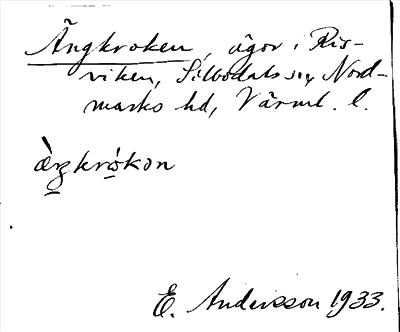 Ängkroken, ägor i Ris-
viken, Silbodals sn, Nord-
marks hd, Värml. l.
æ̀ŋkrókon
E. Andersson 1933.